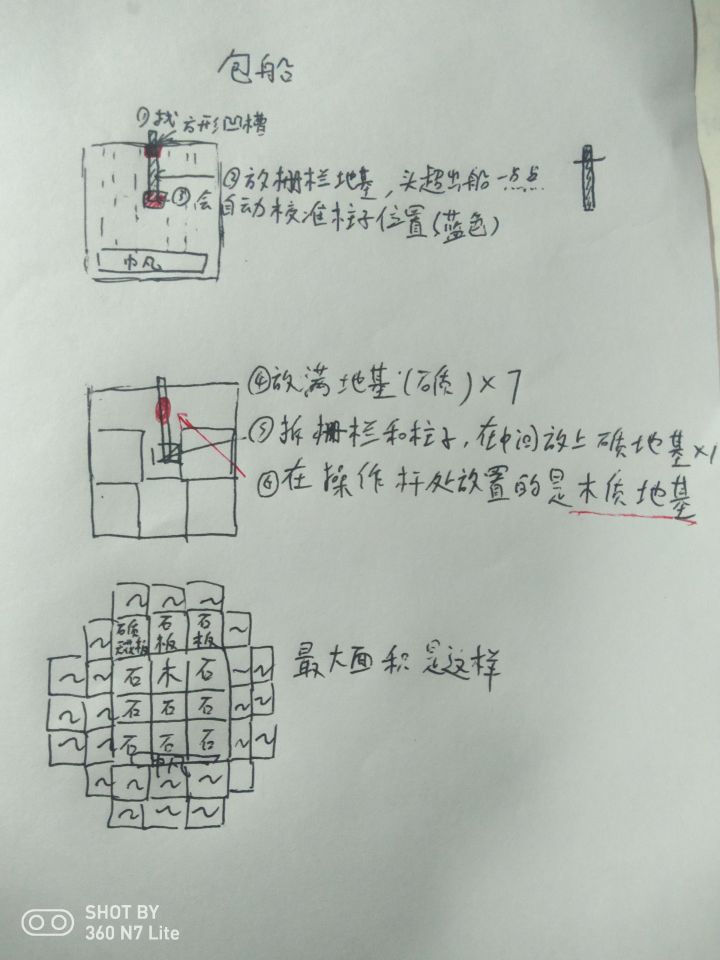 包船
①找方形凹槽
②放栅栏地基，头超出船一点点
③会自动校准柱子位置(蓝色)
巾凡
④放满地基(石质)×7
⑤拆栅栏和柱子，在中间放上石质地基×1
⑥在操作杆处放置的是木质地基
石质 石板 石板
石 木 石
最大面积是这样
石 石 石
石 石 石
巾凡
SHOT BY
360 N7 Lite